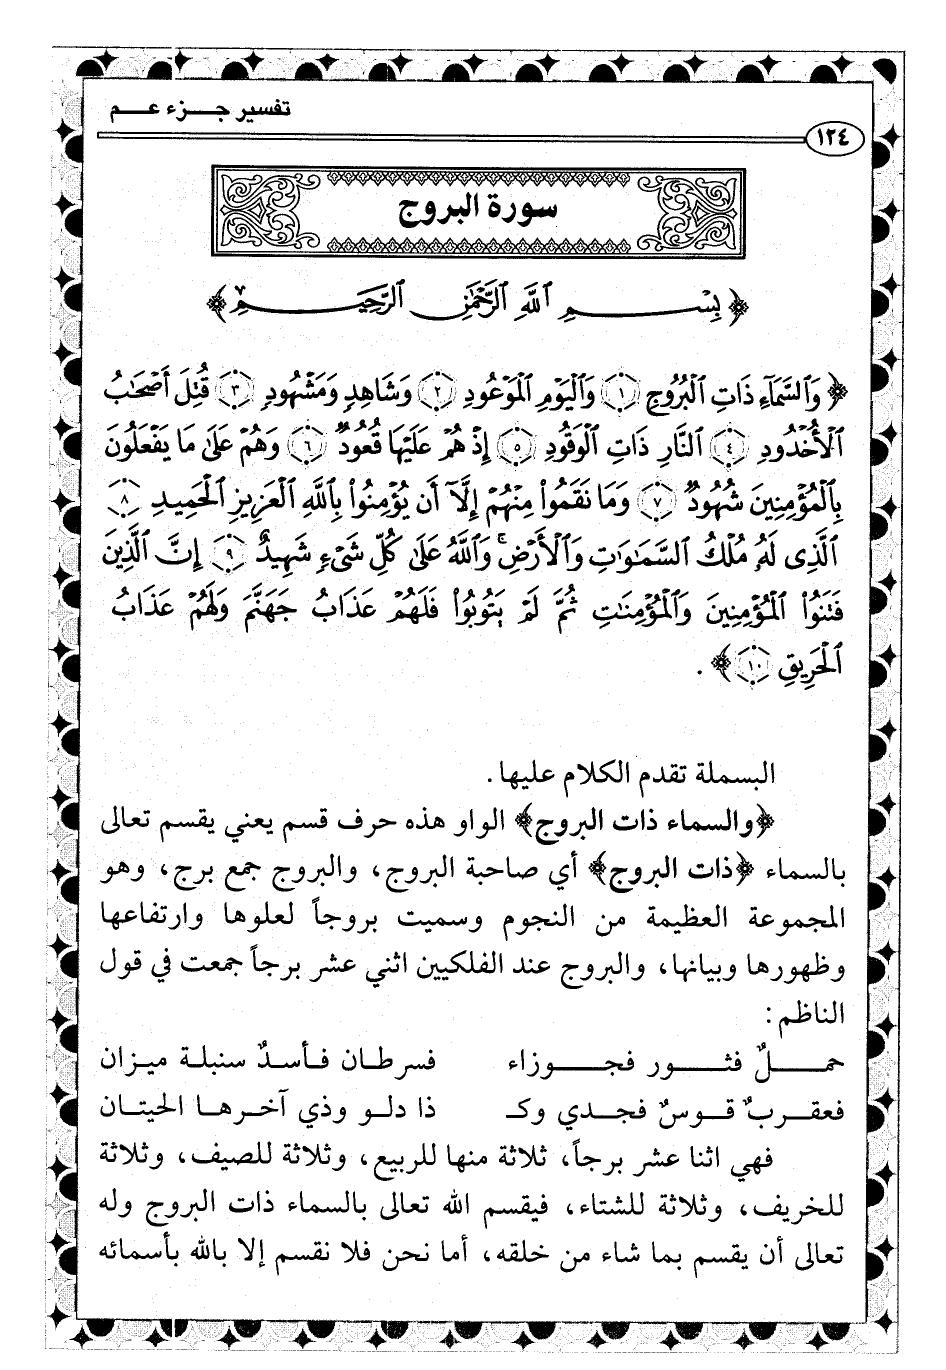 تفسير جزء عم
١٢٤
سورة البروج
﴿بِسْمِ ٱللَّهِ ٱلرَّحْمَٰنِ ٱلرَّحِيمِ﴾
﴿وَٱلسَّمَآءِ ذَاتِ ٱلْبُرُوجِ ١ وَٱلْيَوْمِ ٱلْمَوْعُودِ ٢ وَشَاهِدٍ وَمَشْهُودٍ ٣ قُتِلَ أَصْحَٰبُ
ٱلْأُخْدُودِ ٤ ٱلنَّارِ ذَاتِ ٱلْوَقُودِ ٥ إِذْ هُمْ عَلَيْهَا قُعُودٌ ٦ وَهُمْ عَلَىٰ مَا يَفْعَلُونَ
بِٱلْمُؤْمِنِينَ شُهُودٌ ٧ وَمَا نَقَمُوا۟ مِنْهُمْ إِلَّآ أَن يُؤْمِنُوا۟ بِٱللَّهِ ٱلْعَزِيزِ ٱلْحَمِيدِ ٨
ٱلَّذِى لَهُۥ مُلْكُ ٱلسَّمَٰوَٰتِ وَٱلْأَرْضِ ۚ وَٱللَّهُ عَلَىٰ كُلِّ شَىْءٍ شَهِيدٌ ٩ إِنَّ ٱلَّذِينَ
فَتَنُوا۟ ٱلْمُؤْمِنِينَ وَٱلْمُؤْمِنَٰتِ ثُمَّ لَمْ يَتُوبُوا۟ فَلَهُمْ عَذَابُ جَهَنَّمَ وَلَهُمْ عَذَابُ
ٱلْحَرِيقِ ١٠﴾ .
البسملة تقدم الكلام عليها.
﴿والسماء ذات البروج﴾ الواو هذه حرف قسم يعني يقسم تعالى
بالسماء ﴿ذات البروج﴾ أي صاحبة البروج، والبروج جمع برج، وهو
المجموعة العظيمة من النجوم وسميت بروجاً لعلوها وارتفاعها
وظهورها وبيانها، والبروج عند الفلكيين اثني عشر برجاً جمعت في قول
الناظم:
حمـــلٌ فثـــور فجـــوزاء فسرطـان فـأسـدٌ سنبلـة ميـزان
فعقـربٌ قـوسٌ فجـدي وكـ ذا دلـو وذي آخـرهـا الحيتـان
فهي اثنا عشر برجاً، ثلاثة منها للربيع، وثلاثة للصيف، وثلاثة
للخريف، وثلاثة للشتاء، فيقسم الله تعالى بالسماء ذات البروج وله
تعالى أن يقسم بما شاء من خلقه، أما نحن فلا نقسم إلا بالله بأسمائه